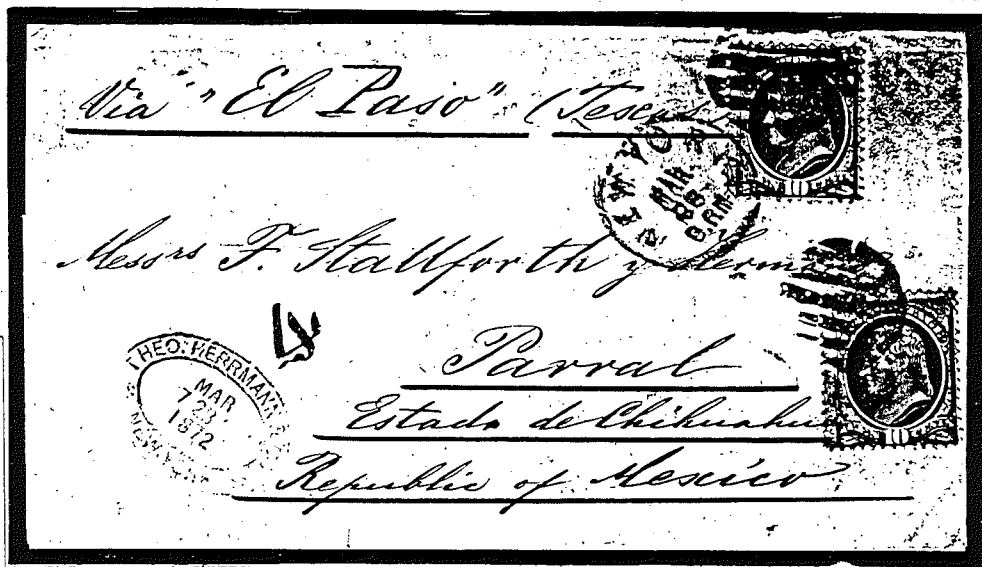 Via "El Paso" (Texas)
NEW YO
MAR
28
Messrs F. Stallforth y Herman
Parral
Estado de Chihuahua
Republic of Mexico
THEO: HERRMANN
MAR
23
1872
NEW
10
10